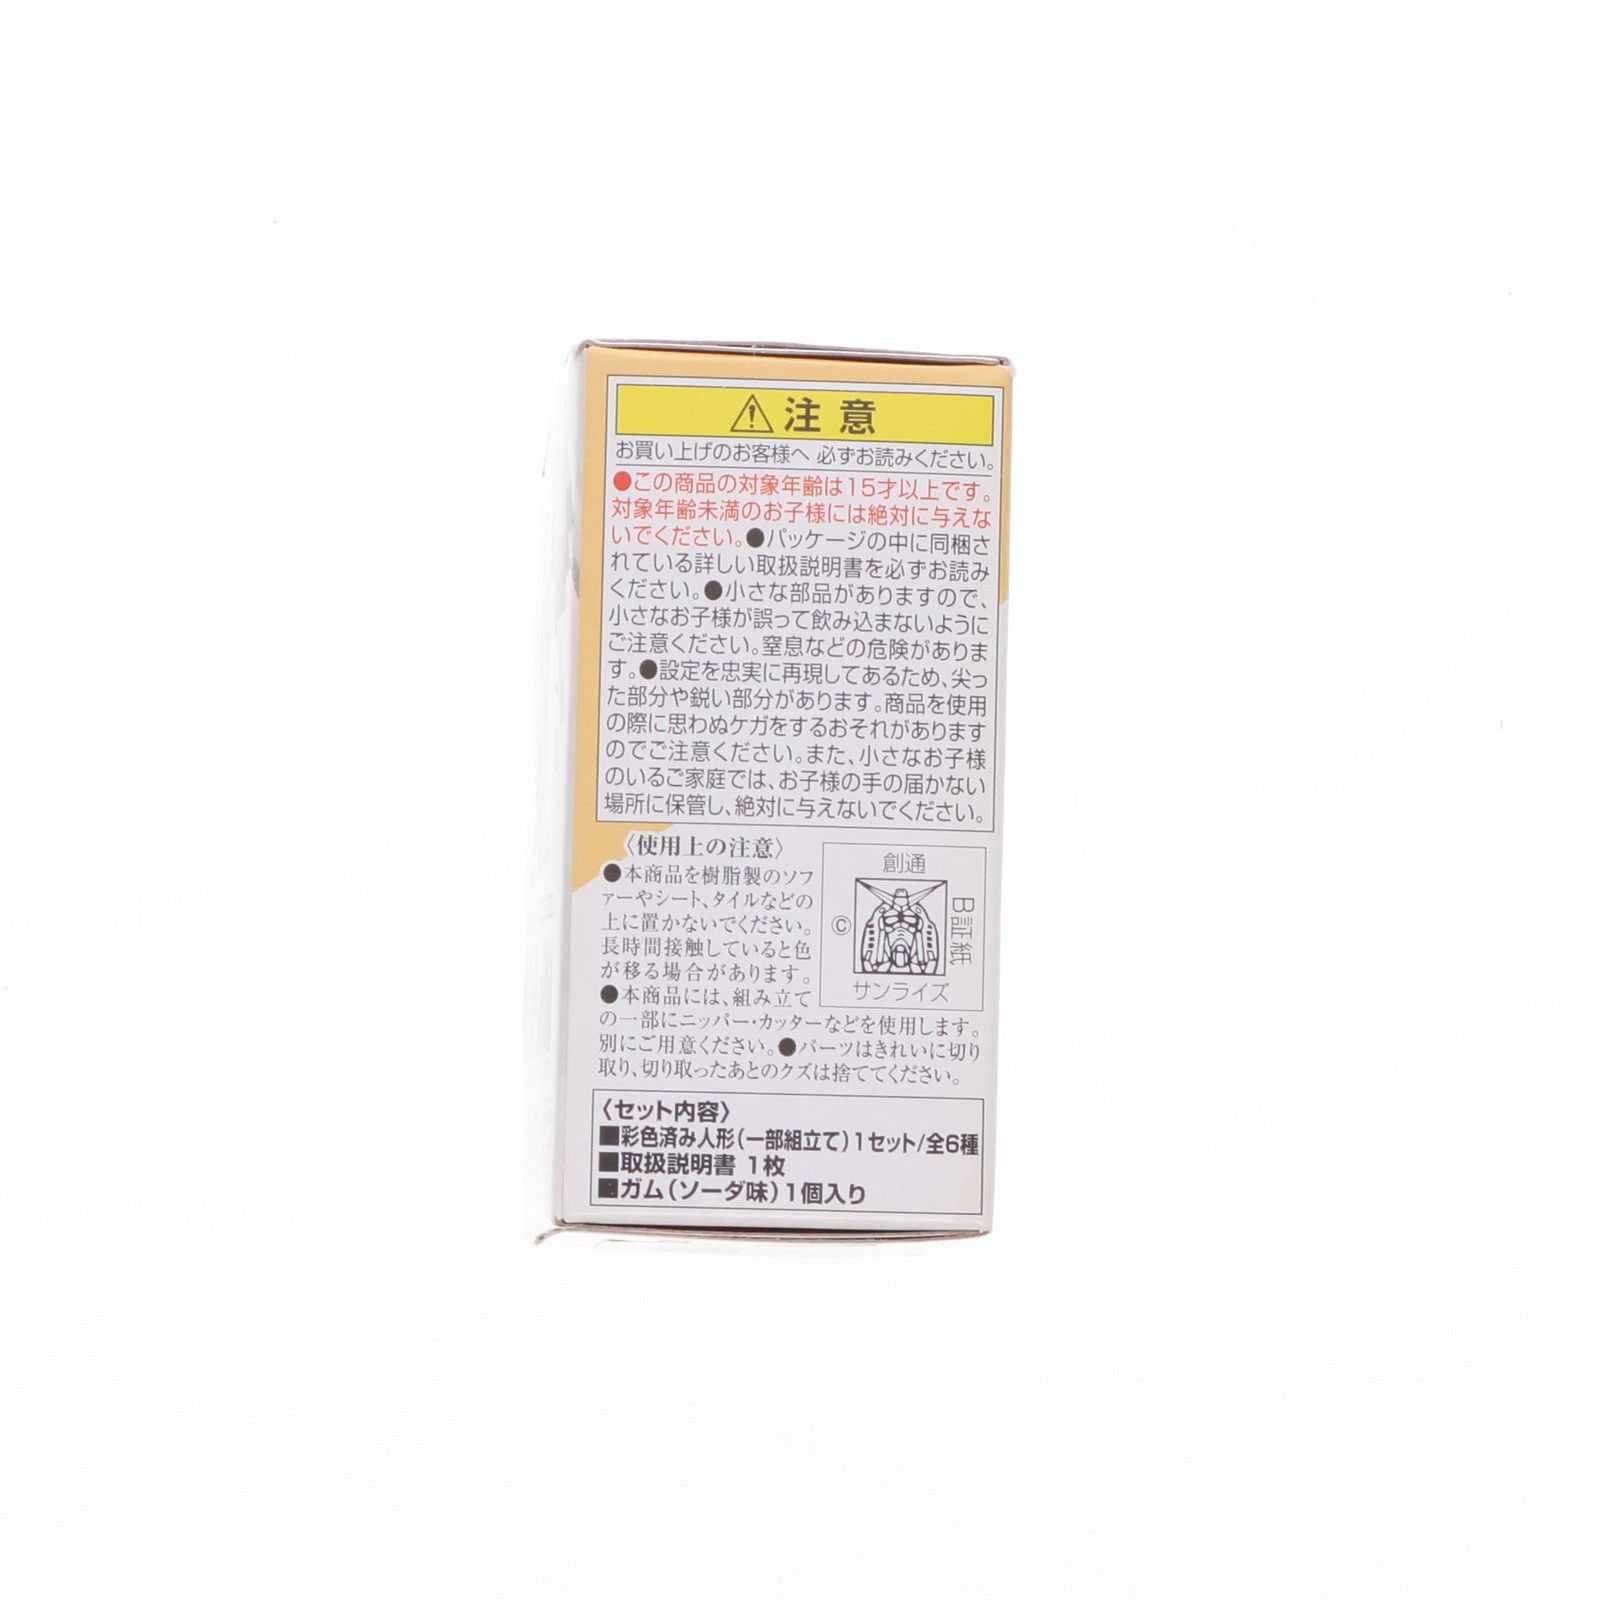 注意
お買い上げのお客様へ 必ずお読みください。
●この商品の対象年齢は15才以上です。
対象年齢未満のお子様には絶対に与えな
いでください。●パッケージの中に同梱さ
れている詳しい取扱説明書を必ずお読み
ください。●小さな部品がありますので、
小さなお子様が誤って飲み込まないように
ご注意ください。窒息などの危険がありま
す。●設定を忠実に再現してあるため、尖っ
た部分や鋭い部分があります。商品を使用
の際に思わぬケガをするおそれがあります
のでご注意ください。また、小さなお子様
のいるご家庭では、お子様の手の届かない
場所に保管し、絶対に与えないでください。
〈使用上の注意〉
●本商品を樹脂製のソフ
ァーやシート、タイルなどの
上に置かないでください。
長時間接触していると色
が移る場合があります。
●本商品には、組み立て
の一部にニッパー・カッターなどを使用します。
別にご用意ください。●パーツはきれいに切り
取り、切り取ったあとのクズは捨ててください。
創通
©
B証紙
サンライズ
〈セット内容〉
■彩色済み人形(一部組立て)1セット/全6種
■取扱説明書 1枚
■ガム(ソーダ味)1個入り